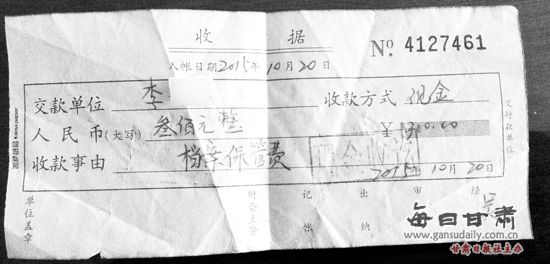 收 据
No. 4127461
入帐日期2015年10月20日
交款单位 李 收款方式 现金
人民币(大写) 叁佰元整 ¥ 300.00
收款事由 档案保管费
2015年10月20日
单位盖章 财会主管 记帐 出纳 审 经
交付款单位
每日甘肃
www.gansudaily.com.cn
甘肃日报社主办